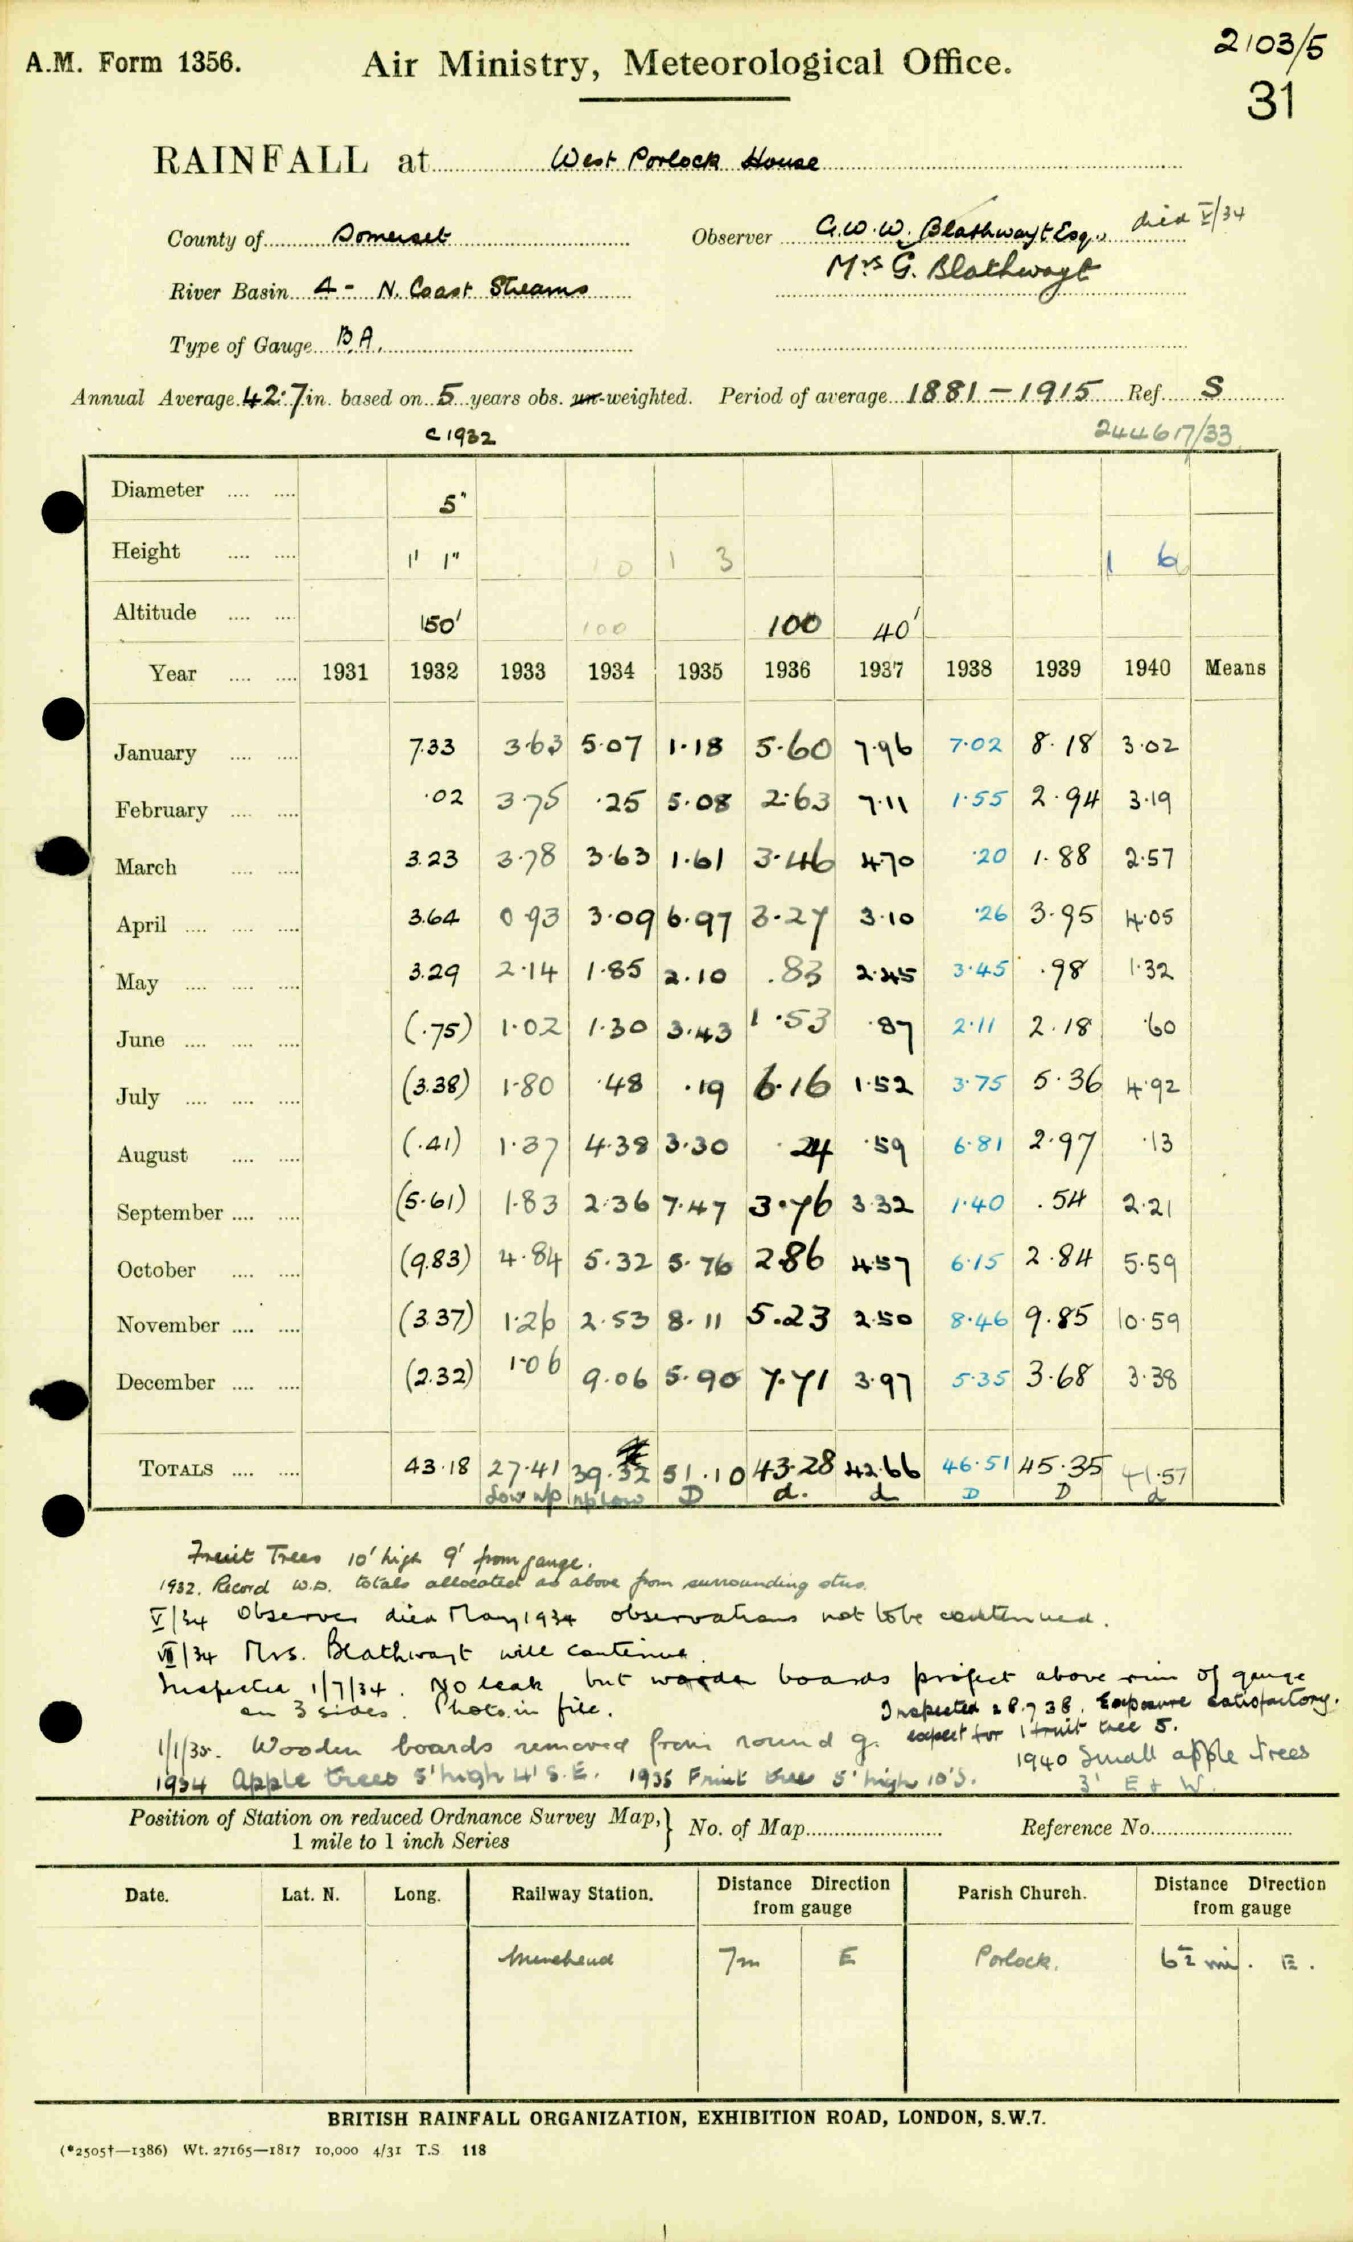 2103/5
A.M. Form 1356. Air Ministry, Meteorological Office.
31
RAINFALL at West Porlock House
County of Somerset Observer G.W.W. Blathwayt Esq., died V/34
River Basin 4 - N. Coast Streams Mrs G. Blathwayt
Type of Gauge B.A.
Annual Average 42.7 in. based on 5 years obs. un-weighted. Period of average 1881 - 1915 Ref. S
c 1932 244617/33
Diameter .... .... 5"
Height .... .... 1' 1" 1 0 1 3 1 6
Altitude .... .... 150' 100 100 40'
Year .... .... 1931 1932 1933 1934 1935 1936 1937 1938 1939 1940 Means
January .... .... 7.33 3.63 5.07 1.18 5.60 7.96 7.02 8.18 3.02
February .... .... .02 3.75 .25 5.08 2.63 7.11 1.55 2.94 3.19
March .... .... 3.23 3.78 3.63 1.61 3.46 4.70 .20 1.88 2.57
April .... .... .... 3.64 0.93 3.09 6.97 3.27 3.10 .26 3.95 4.05
May .... .... .... 3.29 2.14 1.85 2.10 .83 2.45 3.45 .98 1.32
June .... .... .... (.75) 1.02 1.30 3.43 1.53 .87 2.11 2.18 .60
July .... .... .... (3.38) 1.80 .48 .19 6.16 1.52 3.75 5.36 4.92
August .... .... (.41) 1.37 4.38 3.30 .24 .59 6.81 2.97 .13
September .... .... (5.61) 1.83 2.36 7.47 3.76 3.32 1.40 .54 2.21
October .... .... (9.83) 4.84 5.32 5.76 2.86 4.57 6.15 2.84 5.59
November .... .... (3.37) 1.26 2.53 8.11 5.23 2.50 8.46 9.85 10.59
December .... .... (2.32) 1.06 9.06 5.90 7.71 3.97 5.35 3.68 3.38
TOTALS .... .... 43.18 27.41 39.32 51.10 43.28 42.66 46.51 45.35 41.57
Low n/p n/p Low D d. d D D d
Fruit Trees 10' high 9' from gauge.
1932. Record W.D. totals allocated as above from surrounding stns.
V/34 Observer died May 1934 observations not to be continued.
VII/34 Mrs. Blathwayt will continue.
Inspected 1/7/34. No leak, but wooden boards project above rim of gauge
on 3 sides. Photo. in file. Inspected 28.7.38. Exposure satisfactory.
expect for 1 fruit tree S.
1/1/35. Wooden boards removed from round g.
1940 Small apple trees
1934 Apple trees 5' high 4' S.E. 1935 Fruit tree 5' high 10' S. 3' E & W.
Position of Station on reduced Ordnance Survey Map, } No. of Map Reference No.
1 mile to 1 inch Series
Date. Lat. N. Long. Railway Station. Distance Direction from gauge Parish Church. Distance Direction from gauge
Minehead 7m E Porlock. 6½ mi. E.
BRITISH RAINFALL ORGANIZATION, EXHIBITION ROAD, LONDON, S.W.7.
(*2505†—1386) Wt. 27165—1817 10,000 4/31 T.S. 118